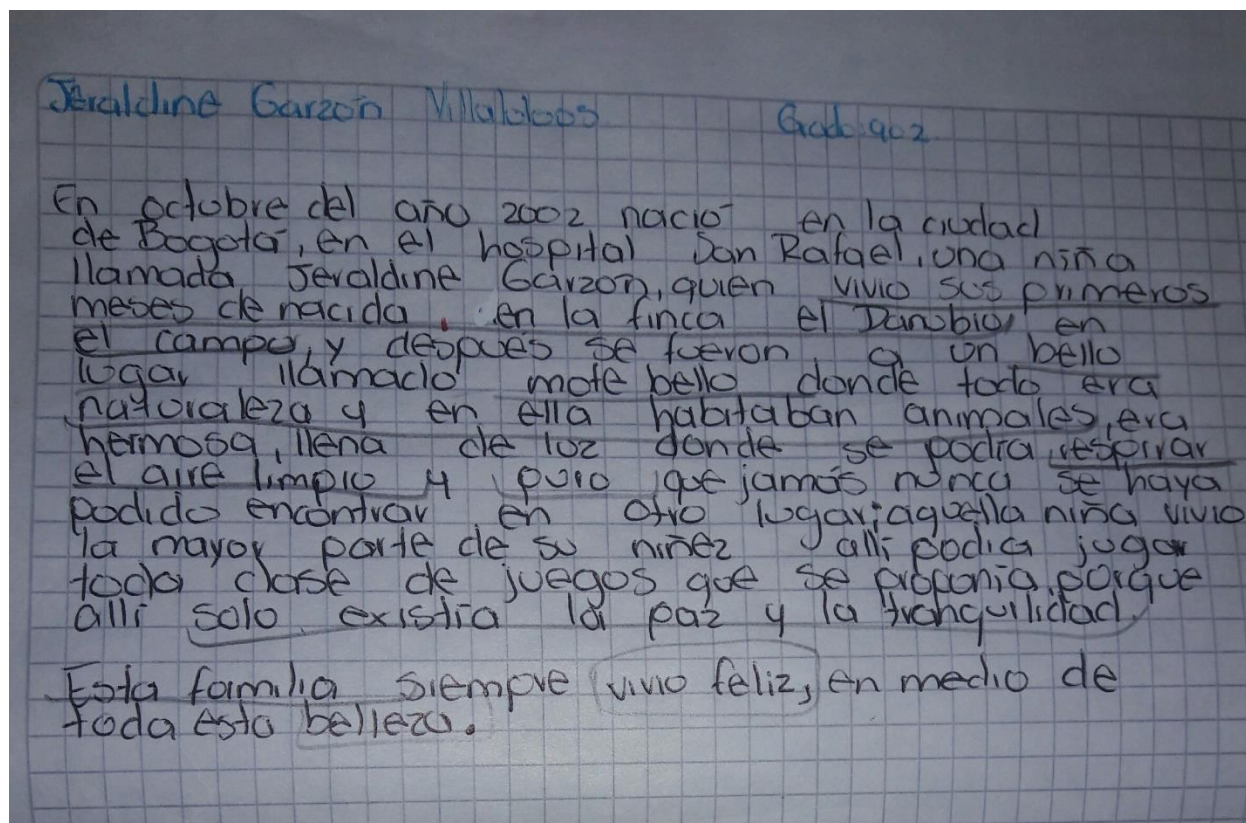 Jeraldine Garzón Villalobos Grado: 902
En octubre del año 2002 nació en la ciudad
de Bogotá, en el hospital San Rafael, una niña
llamada Jeraldine Garzon, quien vivio sus primeros
meses de nacida. en la finca el Danubio, en
el campo, y después se fueron a un bello
lugar llamado mote bello donde todo era
naturaleza y en ella habitaban animales, era
hermosa, llena de luz donde se podia respirar
el aire limpio y puro que jamás nunca se haya
podido encontrar en otro lugar; aquella niña vivio
la mayor parte de su niñez allí podia jugar
toda clase de juegos que se proponía porque
alli solo existia la paz y la tranquilidad.
Esta familia siempre vivio feliz, en medio de
toda esta belleza.